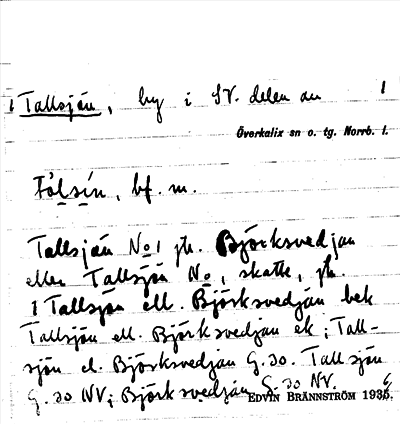 1 Tallsjön, by i SV. delen av 1
Överkalix sn o. tg. Norrb. l.
bf. m.
Tallsjön No 1 jtr. Björksvedjan
eller Tallsjön No 1, skatte, jtr.
1 Tallsjön ell. Björksvedjan bek
Tallsjön ell. Björksvedjan ek; Tall-
sjön el. Björksvedjan G. 30. Tallsjön
G. 30 NV; Björksvedjan G. 30 NV.
EDVIN BRÄNNSTRÖM 1936.